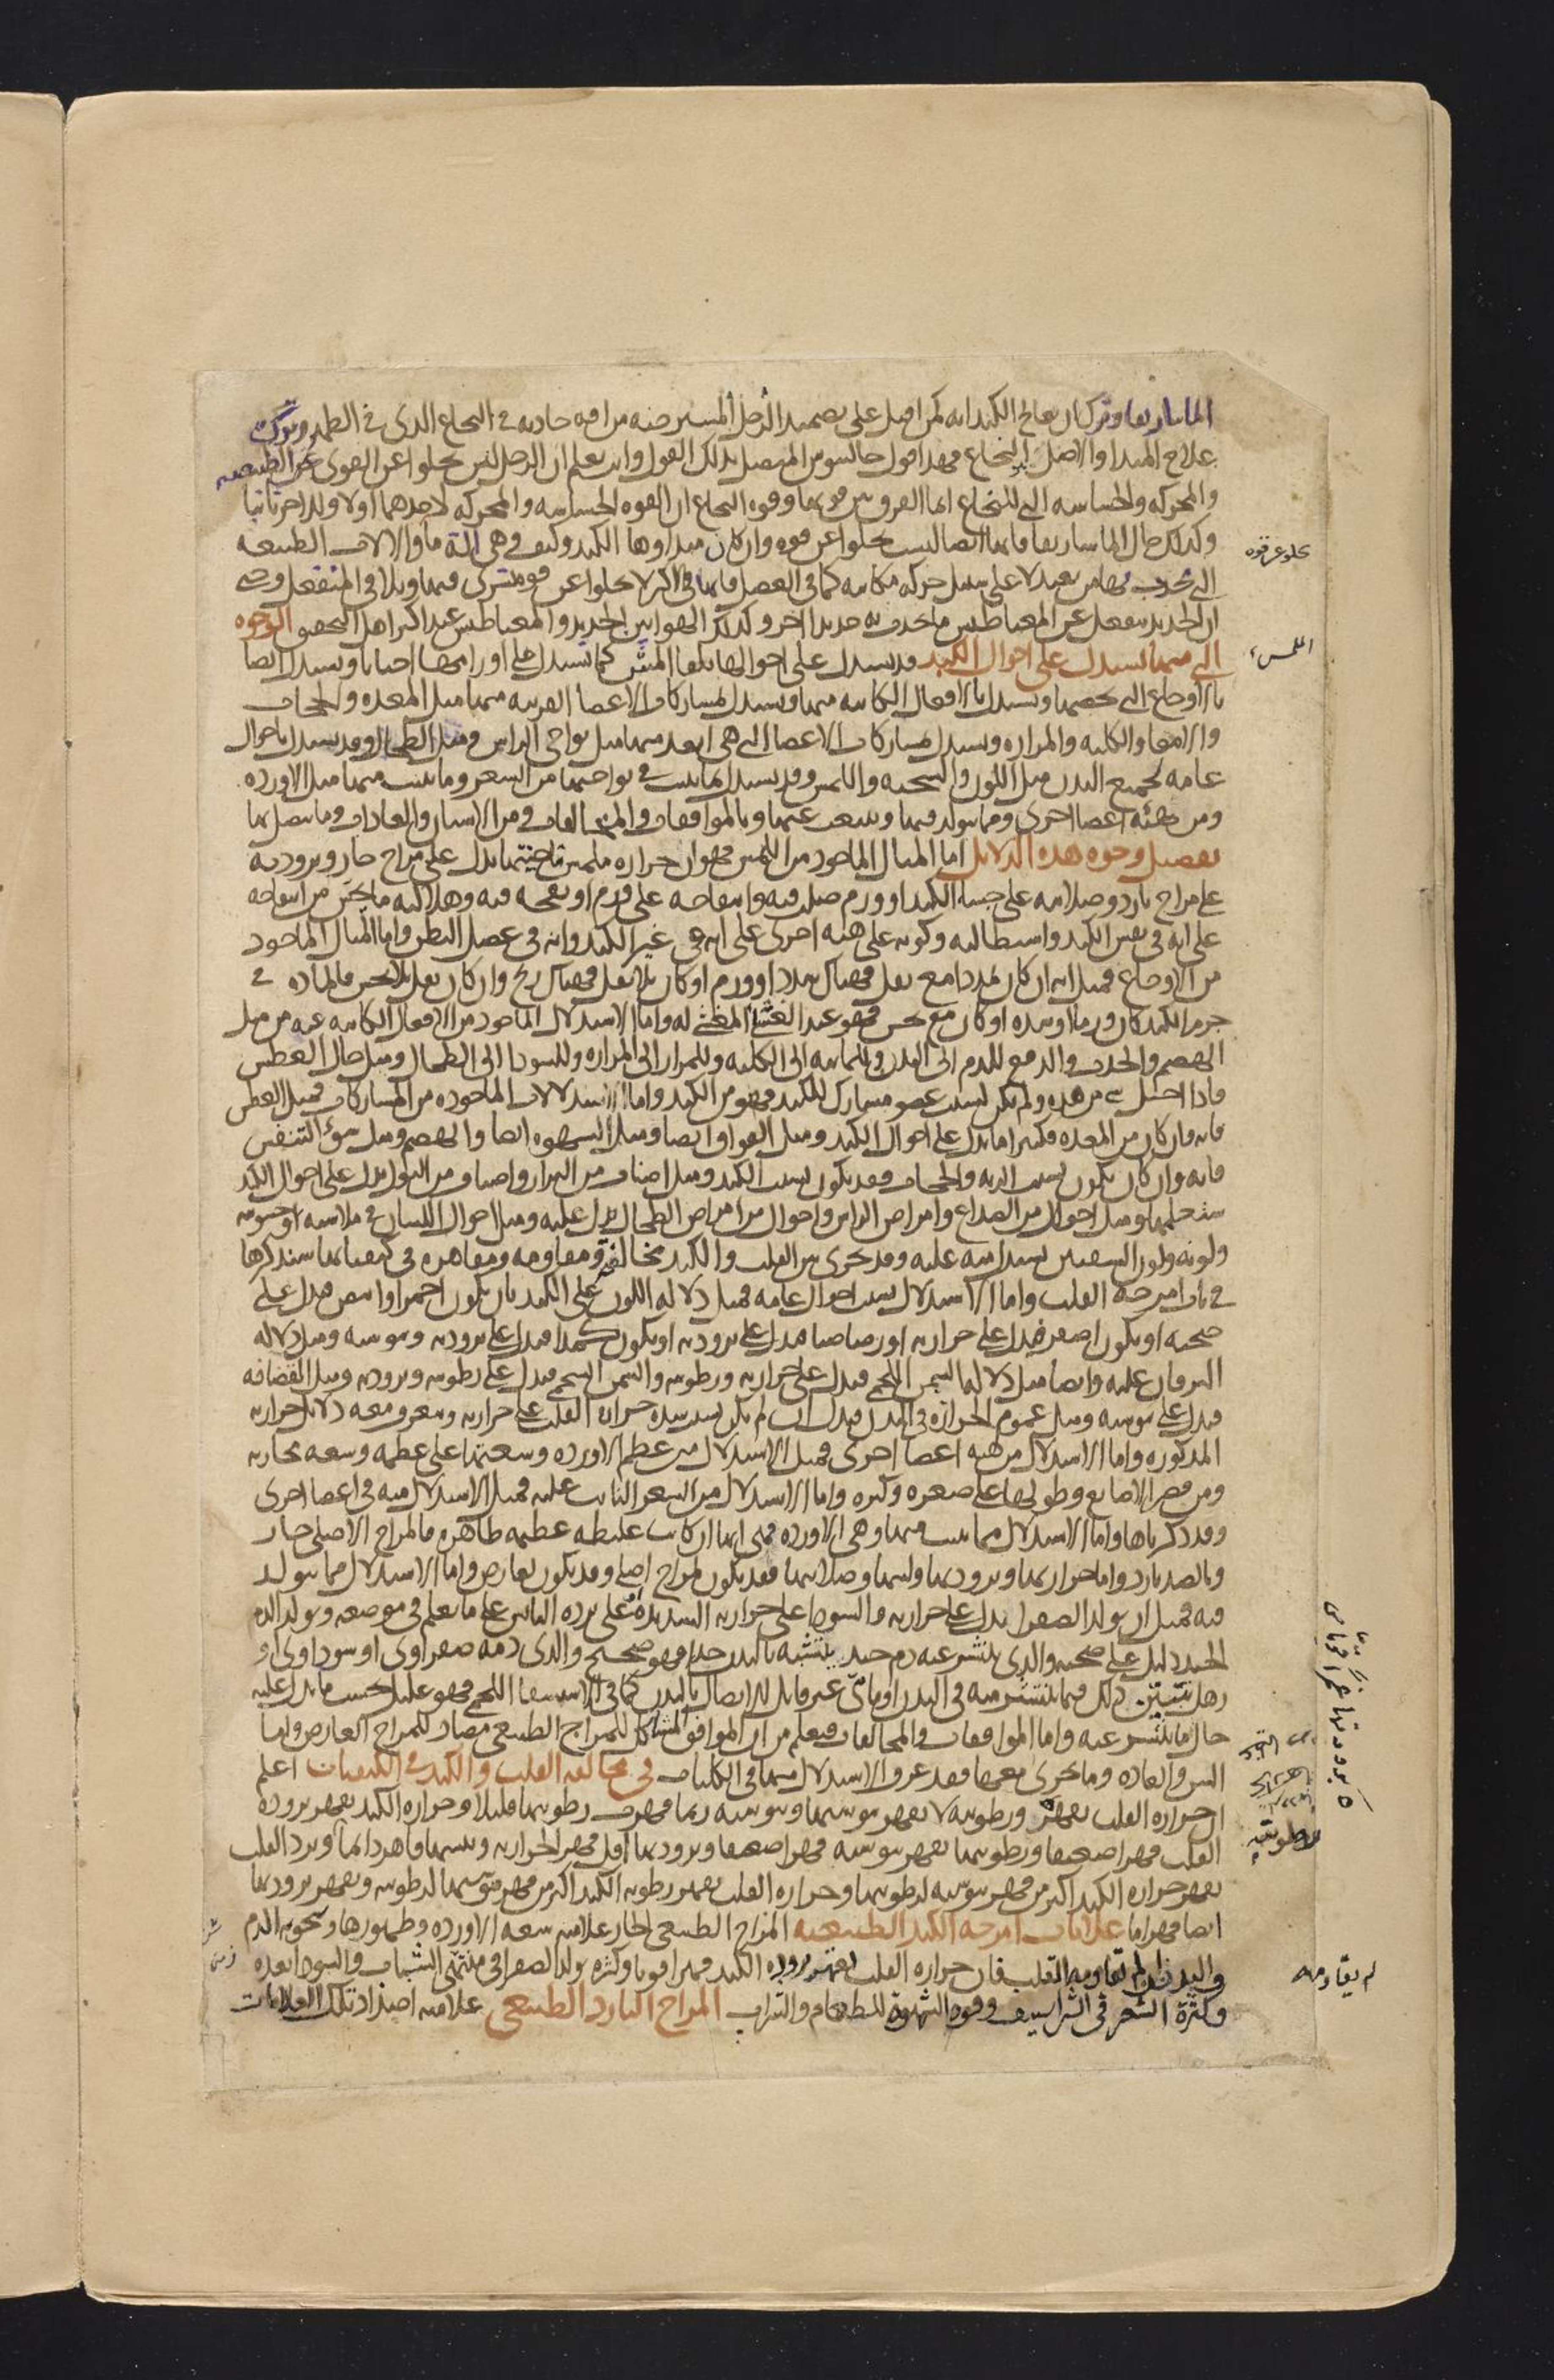 الماساريقا وترك ان يعالج الكبد انه كمن اقبل على تضميد الرجل المسترخية من افة حادثة في النخاع الذي في الظهر وترك
علاج المبدا والاصل والنخاع فهذا قول جالينوس المتصل بذلك القول وانت تعلم ان الرجل ليس تخلوا عن القوى الطبيعية
والمحركة والحساسة التي للنخاع انما الفرق بين قوتها وقوة النخاع ان القوة الحساسة والمحركة لاحدهما اولا وللاخر ثانيا
وكذلك حال الماساريقا فانها ايضا ليست تخلوا عن قوة وان كان مبداوها الكبد وكيف وهي الة ما والالات الطبيعية
التي تجذب بها من بعيد لا على سبيل حركة مكانية كما في العضل فانها في الاكثر لا تخلوا عن قوة تسري فيها وتلاقي المنفعل وحتى
ان الحديد ينفعل عن المغناطيس ما يجذب به حديدا اخر وكذلك الهوا بين الحديد والمغناطيس عند اكثر اهل التحقيق الوجوه
التي منها يستدل على احوال الكبد قد يستدل على احوالها بلقا المس كما يستدل على اورامها احيانا ويستدل ايضا
بالاوجاع التي تخصها ويستدل بالافعال الكاينة منها ويستدل بمشاركات الاعضا القريبة منها مثل المعدة والحجاب
والامعا والكلية والمرارة ويستدل بمشاركات الاعضا التي هي ابعد منها مثل نواحي الراس ومثل الطحال وقد يستدل باحوال
عامة لجميع البدن مثل اللون والسحنة واللمس وقد يستدل بما ينبت في نواحيها من الشعر وما ينبت منها مثل الاوردة
ومن هيئة اعضا اخرى ومما يتولد فيها وينبعث عنها وبالموافقات والمخالفات ومن الاسنان والعادات وما يتصل بها
تفصيل وجوه هذه الدلايل اما المثال الماخوذ من اللمس فهو ان حرارة ملمس ناحيتها يدل على مزاج حار وبرودته
على مزاج بارد وصلابته على جساء الكبد او ورم صلب فيه وانتفاخه على ورم او نفخة فيه وهلالية ما يحس من انتفاخه
على انه في نفس الكبد واستطالته وكونه على هيئة اخرى على انه في غير الكبد وانه في عضل البطن واما المثال الماخوذ
من الاوجاع فمثل انه ان كان تمددا مع ثقل فهناك سدد او ورم او كان بلا ثقل فهناك ريح وان كان ثقل بلا نخس فالمادة في
جرم الكبد كان ورما او سدة او كان مع نخس فهو عند الغشا المغشي له واما الاستدلال الماخوذ من الافعال الكاينة عنه من مثل
الهضم والجذب والدفع للدم الى البدن وللمايية الى الكلية وللمرار الى المرارة وللسودا الى الطحال ومثل حال العطش
فاذا اختل شي من هذه ولم يكن بسبب عضو مشارك للكبد فهو من الكبد واما الاستدلالات الماخوذة من المشاركات فمثل العطش
فانه وان كان من المعدة فكثيرا ما يدل على احوال الكبد ومثل الفواق ايضا ومثل الشهوة ايضا والهضم ومثل سوء التنفس
فانه وان كان يكون بسبب الرية والحجاب فقد يكون بسبب الكبد ومثل اصناف من البراز واصناف من البول يدل على احوال الكبد
ستعلمها ومثل احوال من الصداع وامراض الراس واحوال من امراض الطحال يدل عليه ومثل احوال اللسان في ملاسته او خشونته
ولونه ولون الشفتين يستدل منه عليه وقد يجري بين القلب والكبد مخالفة ومقاومة ومقاهرة في كيفياتها سنذكرها
في باب امزجة القلب واما الاستدلال بسبب احوال عامة فمثل دلالة اللون على الكبد بان يكون احمر وابيض فيدل على
صحته او يكون اصفر فيدل على حرارته او رصاصيا فيدل على برودته او يكون كمدا فيدل على برودته ويبوسته ومثل دلالة
اليرقان عليه وايضا مثل دلالة السمن اللحمي فيدل على حرارته ورطوبته والسمن الشحمي فيدل على رطوبته وبرودته ومثل القضافة
فيدل على يبوسته ومثل عموم الحرارة في البدن فيدل ان لم يكن بسبب شدة حرارة القلب على حرارته ويتعرف معه دلايل حرارته
المذكورة واما الاستدلال من هيئة اعضا اخرى فمثل الاستدلال من عظم الاوردة وسعتها على عظمه وسعة مجاريه
ومن قصر الاصابع وطولها على صغره وكبره واما الاستدلال من الشعر النابت عليه فمثل الاستدلال منه في اعضا اخرى
وقد ذكرناها واما الاستدلال مما ينبت منها وهي الاوردة فهي انها ان كانت غليظة عظيمة ظاهرة فالمزاج الاصلي حار
وبالضد بارد واما حرارتها وبرودتها ولينها وصلابتها فقد يكون لمزاج اصلي وقد يكون لعارض واما الاستدلال مما يتولد
فيه فمثل ان تولد الصفرا يدل على حرارته والسودا على حرارته الشديدة او على برده اليابس على ما تعلم في موضعه وتولد الدم
الجيد دليل على صحته والذي ينتشر عنه دم جيد يتشبه بالبدن جدا فهو صحيح والذي دمه صفراوي او سوداوي او
رهل يتبين ذلك فيما ينتشر منه في البدن او مايي غير قابل للاتصال بالبدن كما في الاستسقا اللحمي فهو عليل بحسب ما يدل عليه
حال ما ينتشر عنه واما الموافقات والمخالفات فتعلم من ان الموافق المشاكل للمزاج الطبيعي مضاد للمزاج العارض واما
السن والعادة وما يجري معها فقد عرف الاستدلال منها في الكليات في مخالفة القلب والكبد في الكيفيات اعلم
ان حرارة القلب تقهر ورطوبته لا تقهر يبوستها ويبوسته ربما قهرت رطوبتها قليلا وحرارة الكبد تقهر برودة
القلب قهرا ضعيفا ورطوبتها تقهر يبوسته قهرا ضعيفا وبرودتها اقل قهرا لحرارته ويبسها قاهر دايما وبرد القلب
يقهر حرارة الكبد اكثر من قهر يبوسته لرطوبتها وحرارة القلب تقهر رطوبة الكبد اكثر من قهر يبوستها لرطوبته وتقهر برودتها
ايضا قهرا ما علامات امزجة الكبد الطبيعية المزاج الطبيعي الحار علامته سعة الاوردة وظهورها وسخونة الدم
والبدن ان لم تقاومه القلب فان حرارة القلب تقهر برودة الكبد قهرا قويا وكثرة تولد الصفرا في منتهى الشباب والسودا بعده
وكثرة الشعر في الشراسيف وقوة الشهوة للطعام والشراب المزاج البارد الطبيعي علامته اضداد تلك العلامات
اللمس
لم يقاومه